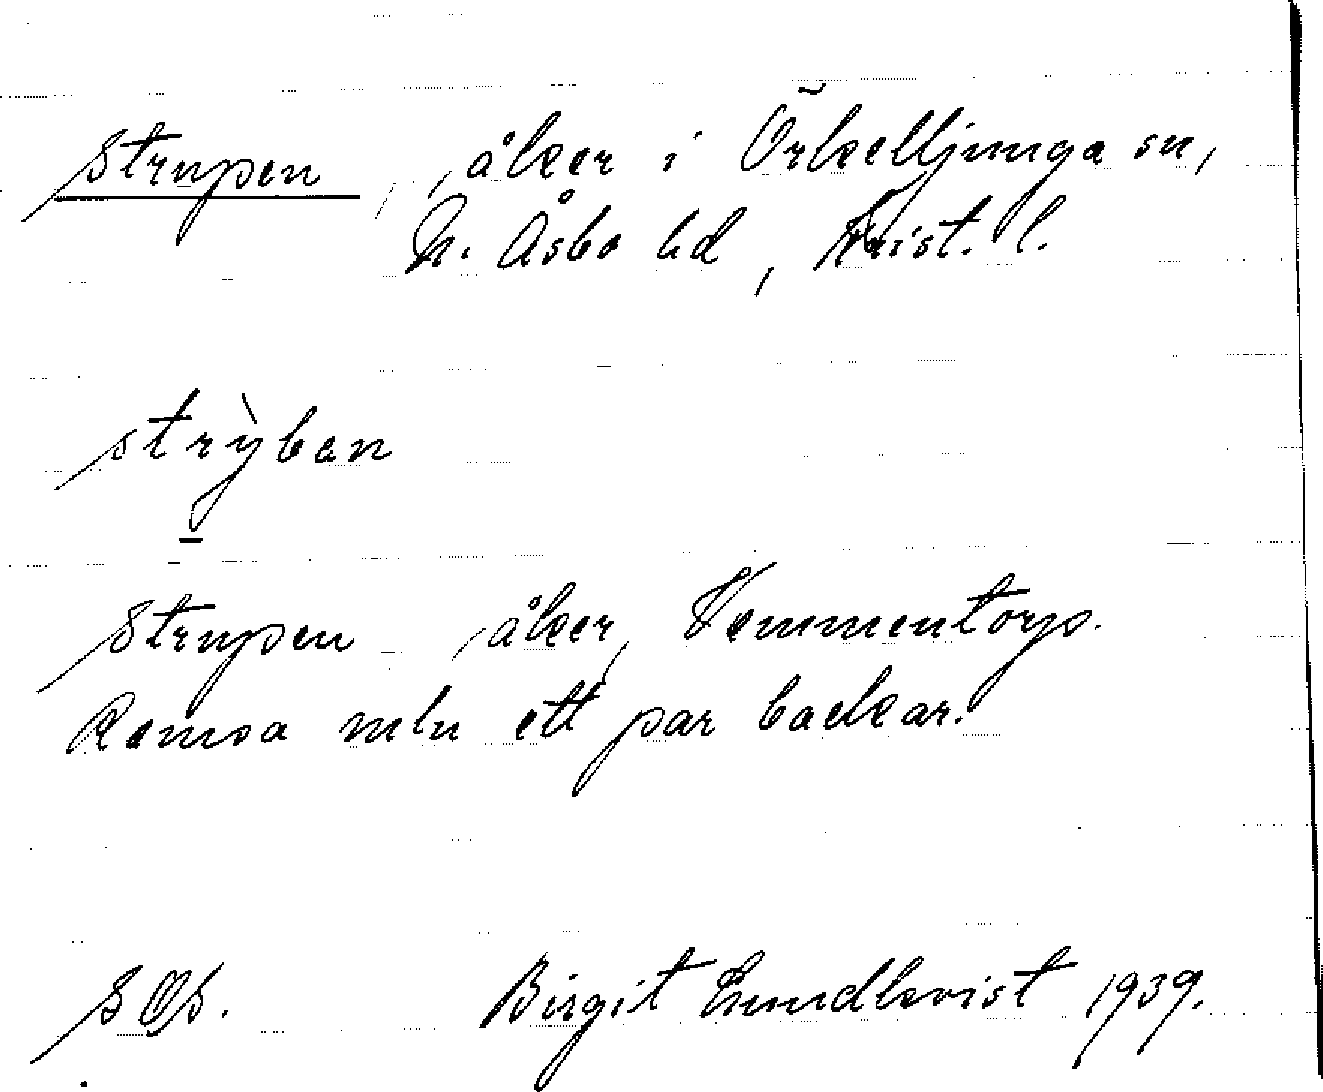 Strupen, åker i Örkelljunga sn,
N. Åsbo hd, Krist. l.
strỳban
Strupen, åker, Vemmentorp.
Remsa mln ett par backar.
SOs. Birgit Lundkvist 1939.